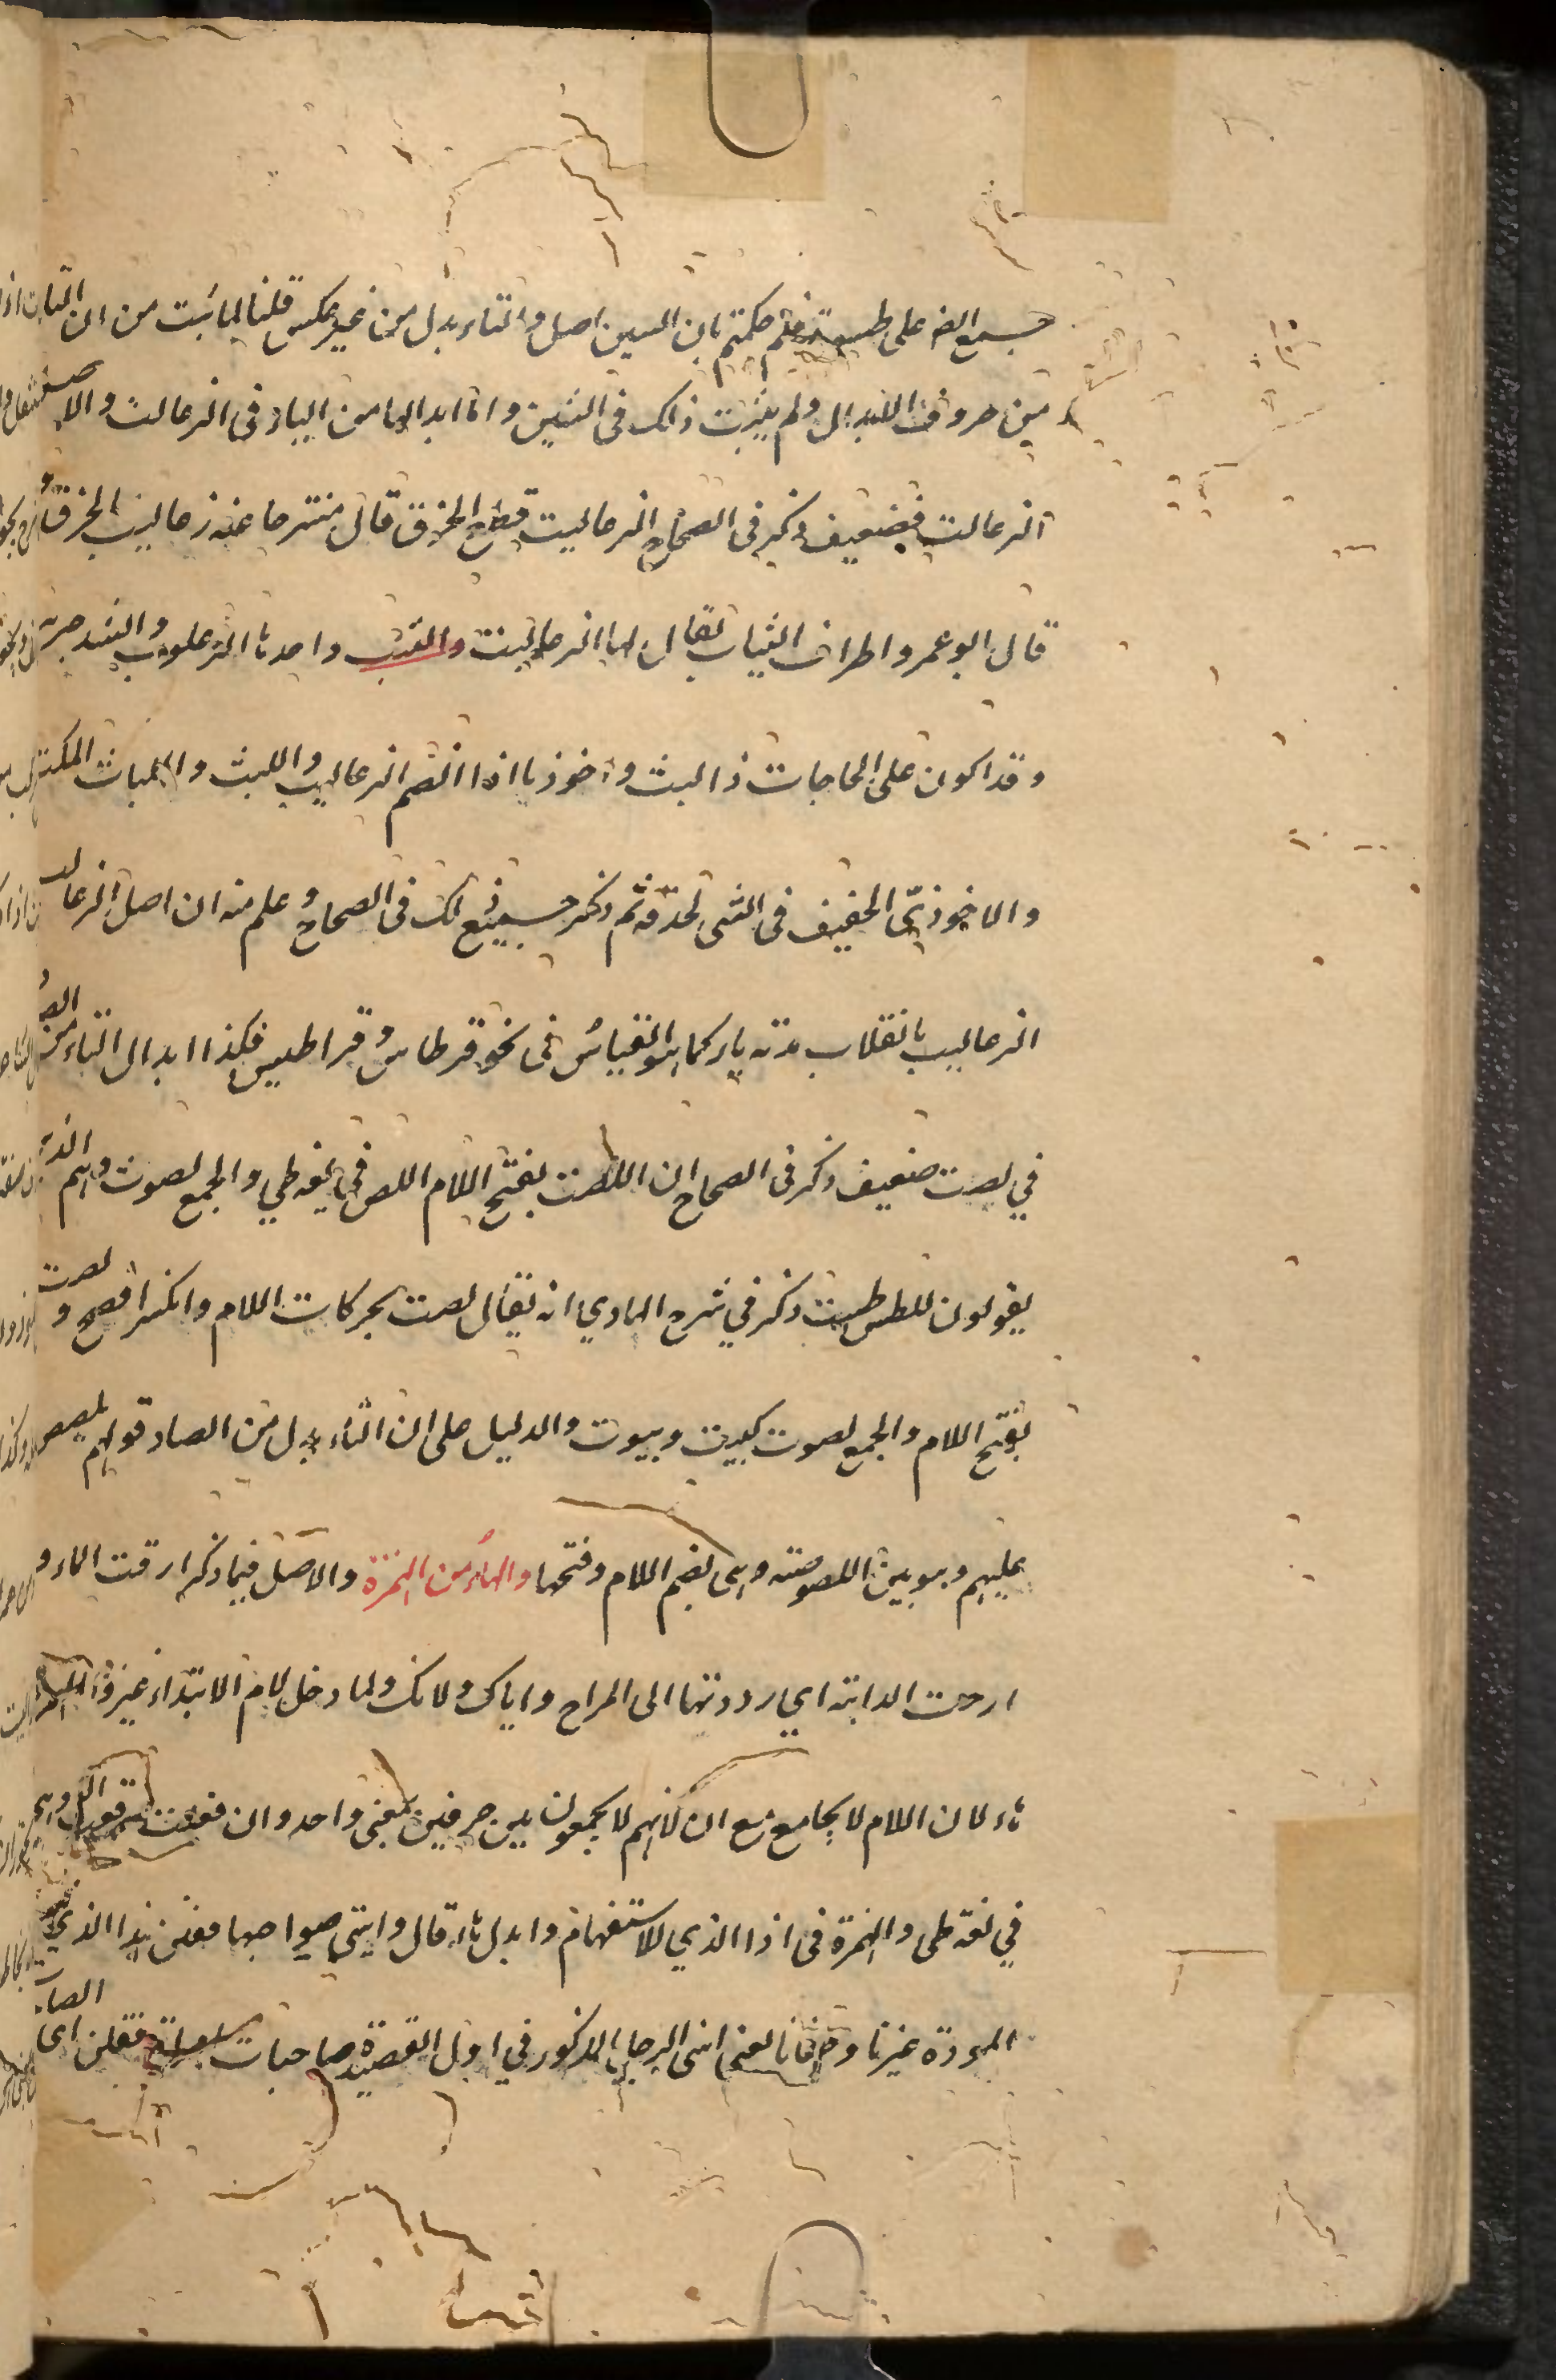 جمع ايضا على طسوت فلم حكمتم بان السين اصل والتاء بدل من غير عكس قلنا لما ثبت من ان التاء
من حروف الابدال ولم يثبت ذلك في السين واما ابدالها من الباء في الذعالت والاصل
الذعالت فضعيف ذكر في الصحاح الذعاليب قطع الخرق قال منسرحا عنه ذعاليب الخرق
قال ابو عمرو اطراف الثياب يقال لها الذعاليب واحدها الذعلوب وانشد جرير
وقد اكون على الحاجات ذا لبث واحوذيا اذا انضم الذعاليب واللبث واللباث المكث
والاحوذي الخفيف في الشيء لحذقه ثم ذكر جميع ذلك في الصحاح وعلم منه ان اصل الذعالب
الذعاليب بانقلاب مدته ياء كما هو القياس في نحو قرطاس وقراطيس فكذا ابدال التاء من الصاد
في لصت ضعيف ذكر في الصحاح ان اللصت بفتح اللام اللص في لغة طي والجمع لصوت وهم الذين
يقولون للطس طست ذكر في شرح الهادي انه يقال لصت بحركات اللام والكسر افصح و لصت
بفتح اللام والجمع لصوت كبيت وبيوت والدليل على ان التاء بدل من الصاد قولهم تلصص
عليهم وهو بين اللصوصية وهي بضم اللام وفتحها والهاء من الهمزة والاصل فيما ذكر ارقت الماء و
ارحت الدابة اي رددتها الى المراح واياك ولانك ولما دخل لام الابتداء غيروا الهمزة
هاء لان اللام لا يجامع مع ان لانهم لا يجمعون بين حرفين بمعنى واحد وان فعلت
في لغة طي والهمزة في اذا الذي للاستفهام وابدل هاء قال واتى صواحبها فقلن هذا الذي
المودة غيرنا وجفانا يعني اتى الرجل المذكور في اول القصيدة صاحبات فقلن اي